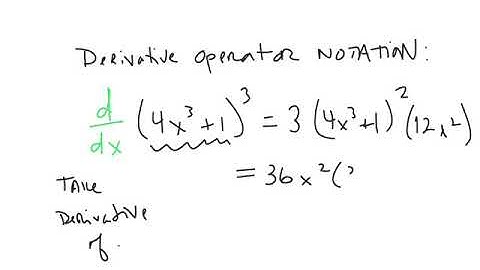 Derivative operator NOTATION:
d/dx (4x³+1)³ = 3(4x³+1)²(12x²)
= 36x²(
TAKE
Derivative
of